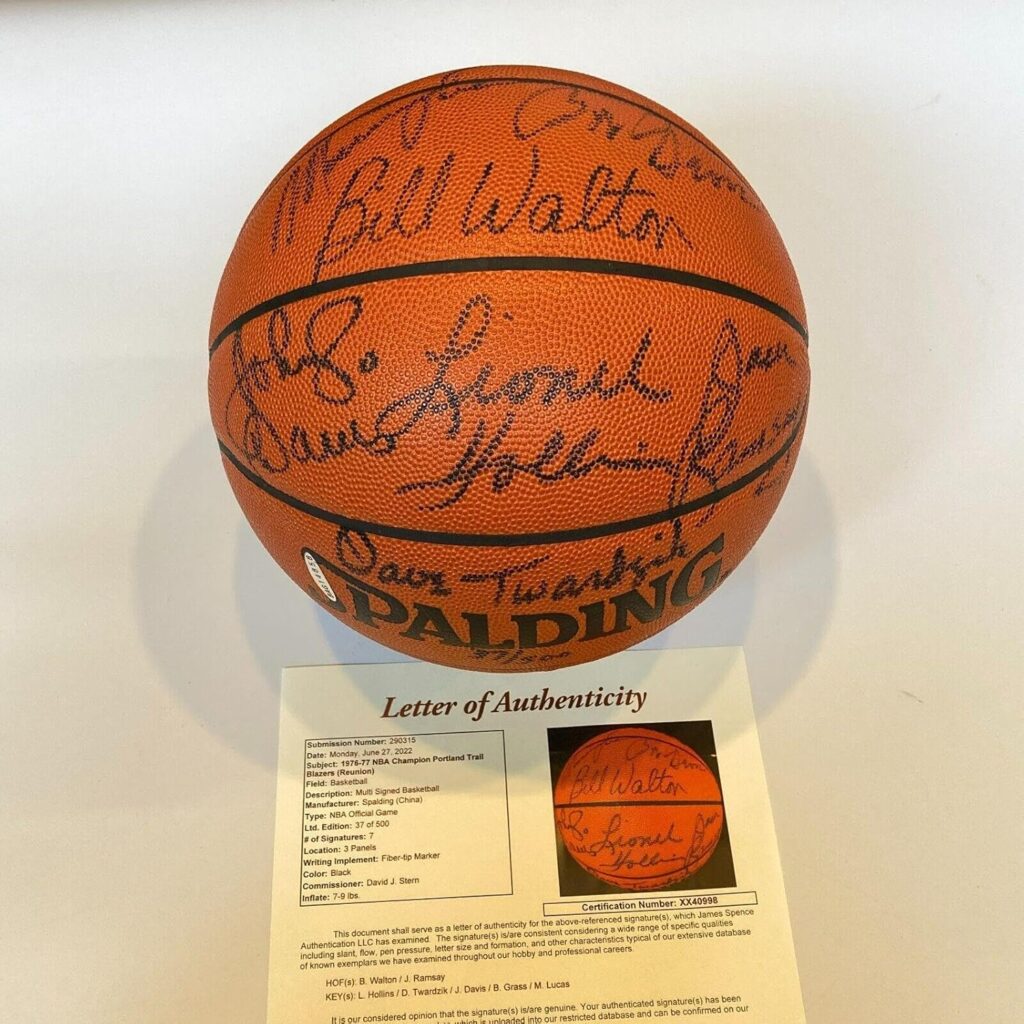 Bill Walton
Johnny
Davis
Lionel
Hollins
Jack
Ramsay
Dave Twardzik
SPALDING
37/500
Letter of Authenticity
Submission Number: 290315
Date: Monday, June 27, 2022
Subject: 1976-77 NBA Champion Portland Trail
Blazers (Reunion)
Field: Basketball
Description: Multi Signed Basketball
Manufacturer: Spalding (China)
Type: NBA Official Game
Ltd. Edition: 37 of 500
# of Signatures: 7
Location: 3 Panels
Writing Implement: Fiber-tip Marker
Color: Black
Commissioner: David J. Stern
Inflate: 7-9 lbs.
Bill Walton
Lionel
Hollins
Certification Number: XX40998
This document shall serve as a letter of authenticity for the above-referenced signature(s), which James Spence
Authentication LLC has examined. The signature(s) is/are consistent considering a wide range of specific qualities
including slant, flow, pen pressure, letter size and formation, and other characteristics typical of our extensive database
of known exemplars we have examined throughout our hobby and professional careers.
HOF(s): B. Walton / J. Ramsay
KEY(s): L. Hollins / D. Twardzik / J. Davis / B. Grass / M. Lucas
It is our considered opinion that the signature(s) is/are genuine. Your authenticated signature(s) has been
which is uploaded into our restricted database and can be confirmed on our